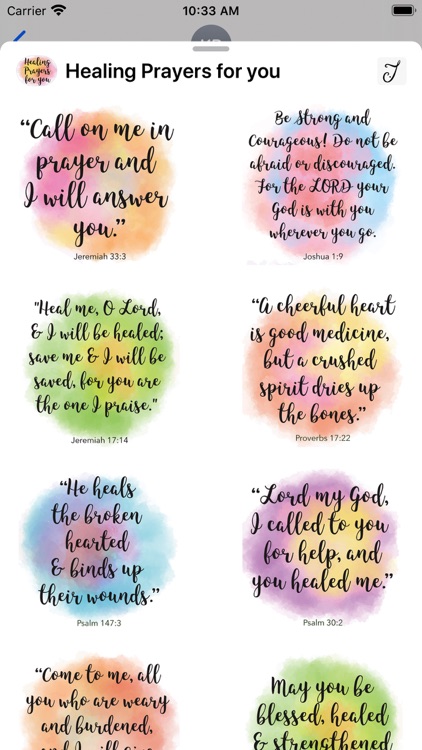 Carrier 10:33 AM
Healing
Prayers
for you
Healing Prayers for you
“Call on me in
prayer and
I will answer
you.”
Jeremiah 33:3
Be Strong and
Courageous! Do not be
afraid or discouraged.
For the LORD your
God is with you
wherever you go.
Joshua 1:9
"Heal me, O Lord,
& I will be healed;
save me & I will be
saved, for you are
the one I praise."
Jeremiah 17:14
“A cheerful heart
is good medicine,
but a crushed
spirit dries up
the bones.”
Proverbs 17:22
“He heals
the broken
hearted
& binds up
their wounds.”
Psalm 147:3
“Lord my God,
I called to you
for help, and
you healed me.”
Psalm 30:2
“Come to me, all
you who are weary
and burdened,
and I will give
May you be
blessed, healed
& strengthened